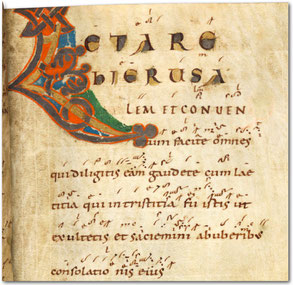 LETARE
HIERUSA
LEM ET CONVEN
tum facite omnes
qui diligitis eam gaudete cum lae
titia qui in tristitia fu istis ut
exultetis et saciemini ab uberibs
consolatio nis eius